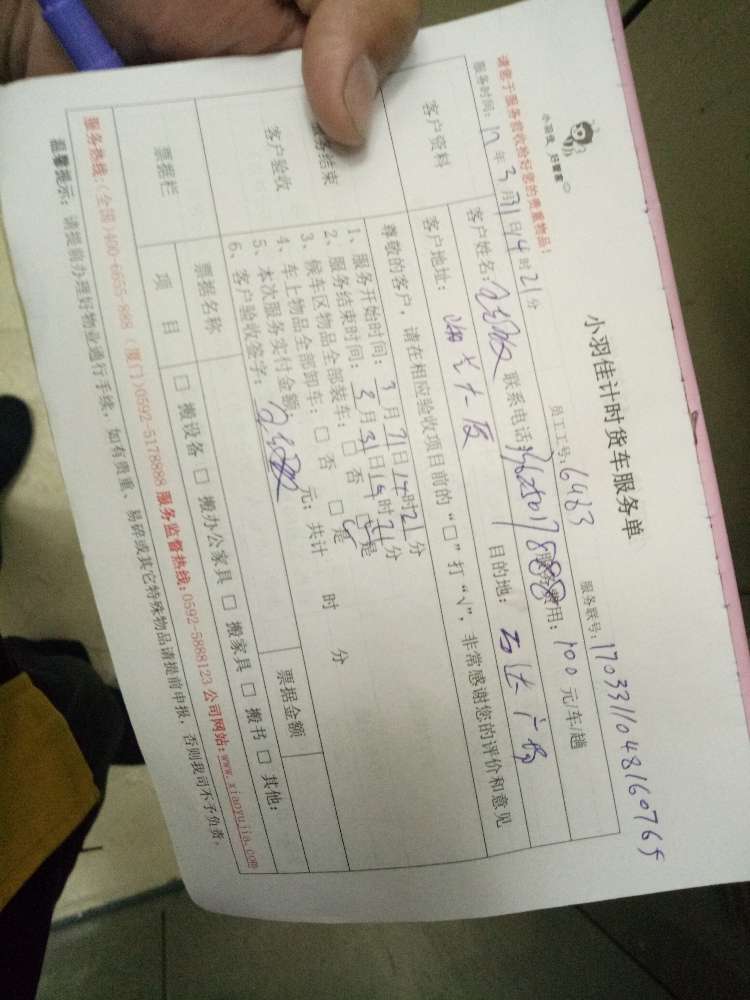 小羽佳 好管家
小羽佳计时货车服务单
服务联号: 17033110481607 65
请您于服务前收给好您的贵重物品!
服务时间: 17 年 3 月 31 日 14 时 21 分
员工工号: 6483
服务费用: 100 元/车/趟
客户资料
客户姓名:
联系电话:
客户地址:
目的地:
尊敬的客户,请在相应验收项目前的“□”打“√”,非常感谢您的评价和意见
服务结束
客户验收
1、服务开始时间: 3 月 31 日 14 时 21 分
2、服务结束时间: 3 月 31 日 14 时 21 分
3、候车区物品全部装车: □ 否 □ 是
4、车上物品全部卸车: □ 否 □ 是
5、本次服务实付金额 元; 共计 时 分
6、客户验收签字:
票据栏
票据名称
票据金额
项目
□ 搬设备 □ 搬办公家具 □ 搬家具 □ 搬书 □ 其他:
服务热线:(全国)400-6655-888 (厦门)0592-5178888 服务监督热线:0592-5888123 公司网站:www.xiaoyujia.com
温馨提示: 请提前办理好物业通行手续, 如有贵重、易碎或其它特殊物品请提前申报, 否则我司不予负责。